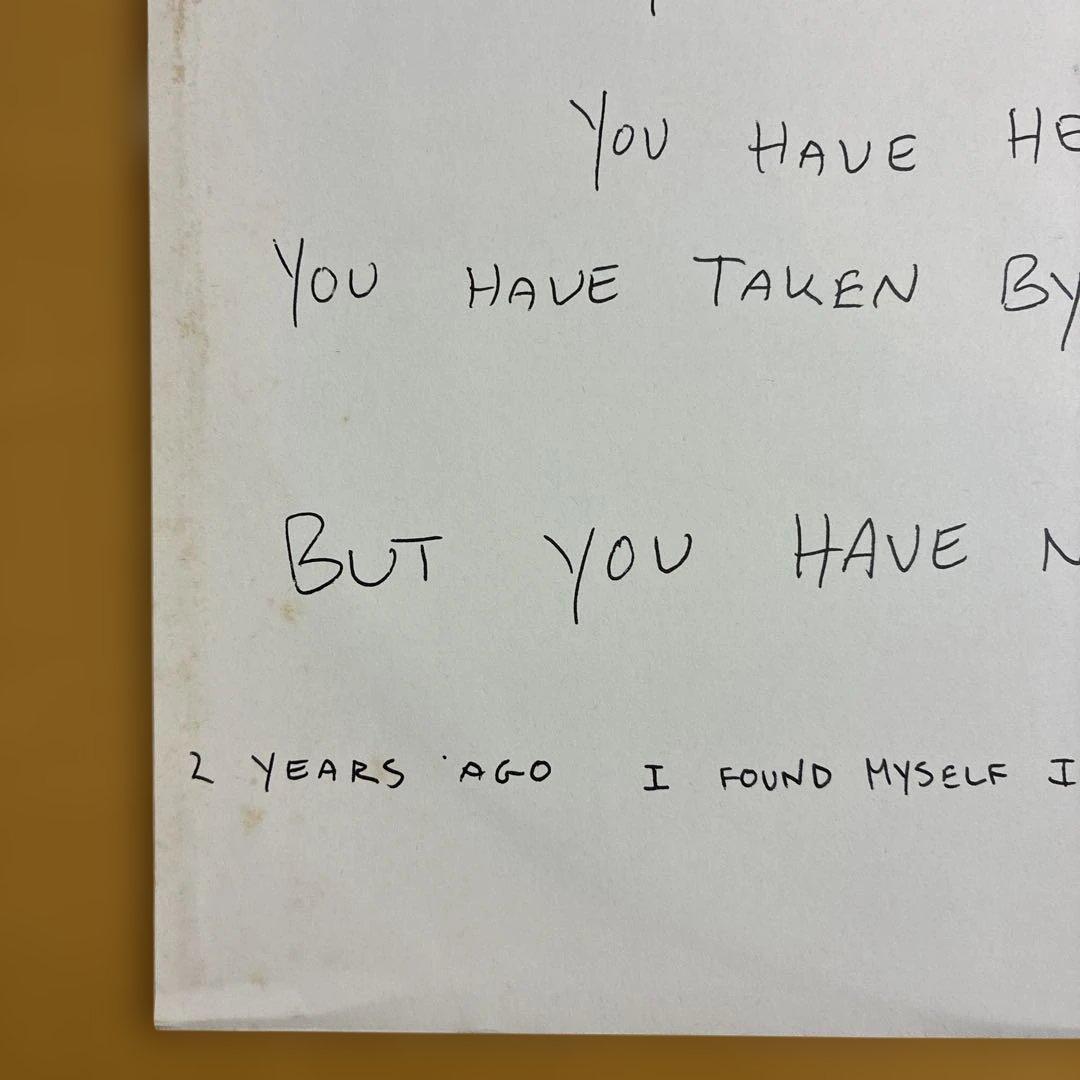 YOU HAVE HE
YOU HAVE TAKEN BY
BUT YOU HAVE N
2 YEARS AGO I FOUND MYSELF I